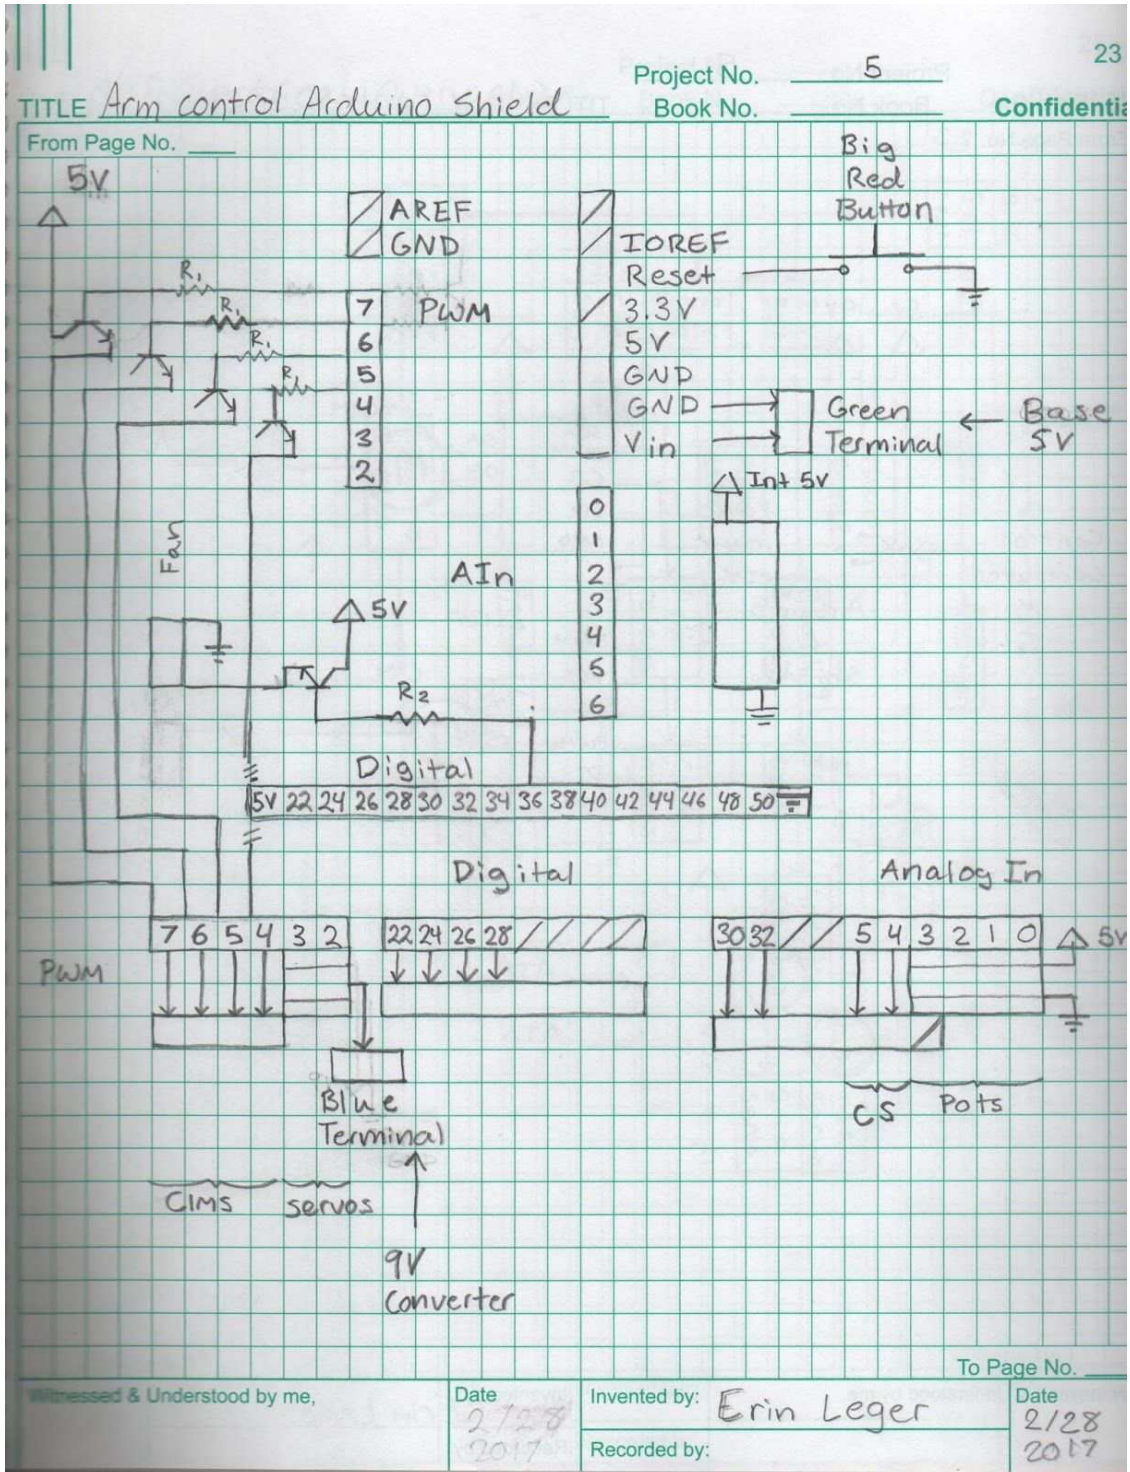 23
Project No. 5
TITLE Arm control Arduino Shield
Book No.
Confidentia
From Page No.
5V
Big
Red
Button
AREF
GND
IOREF
Reset
3.3V
5V
GND
GND
Vin
R1
R1
R1
R1
7 PWM
6
5
4
3
2
Green
Terminal
Base
5V
Int 5V
Fan
AIn
0
1
2
3
4
5
6
5V
R2
Digital
5V 22 24 26 28 30 32 34 36 38 40 42 44 46 48 50
Digital
Analog In
7 6 5 4 3 2
22 24 26 28
30 32 5 4 3 2 1 0
5V
PWM
Blue
Terminal
CS
Pots
CIMS
servos
9V
Converter
To Page No.
Witnessed & Understood by me,
Date
2/28
2017
Invented by: Erin Leger
Recorded by:
Date
2/28
2017